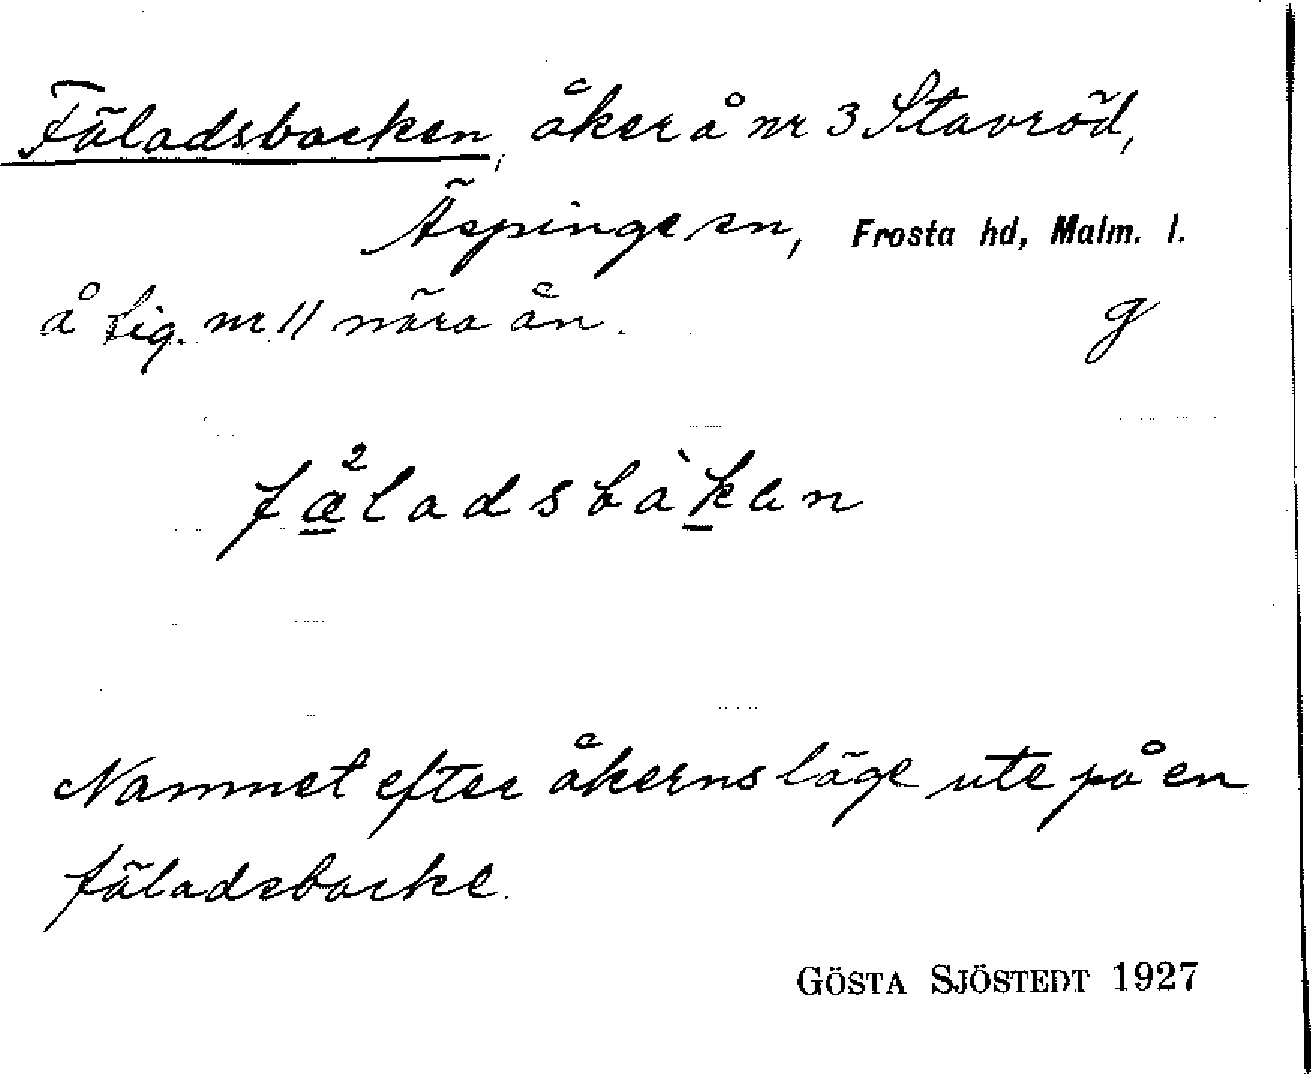 Fäladsbacken, åker å nr 3 Stavröd,
Äspinge sn, Frosta hd, Malm. l.
å fig. nr 11 nära ån. g
fæ²ladsbàkan
Namnet efter åkerns läge ute på en
fäladsbacke.
GÖSTA SJÖSTEDT 1927